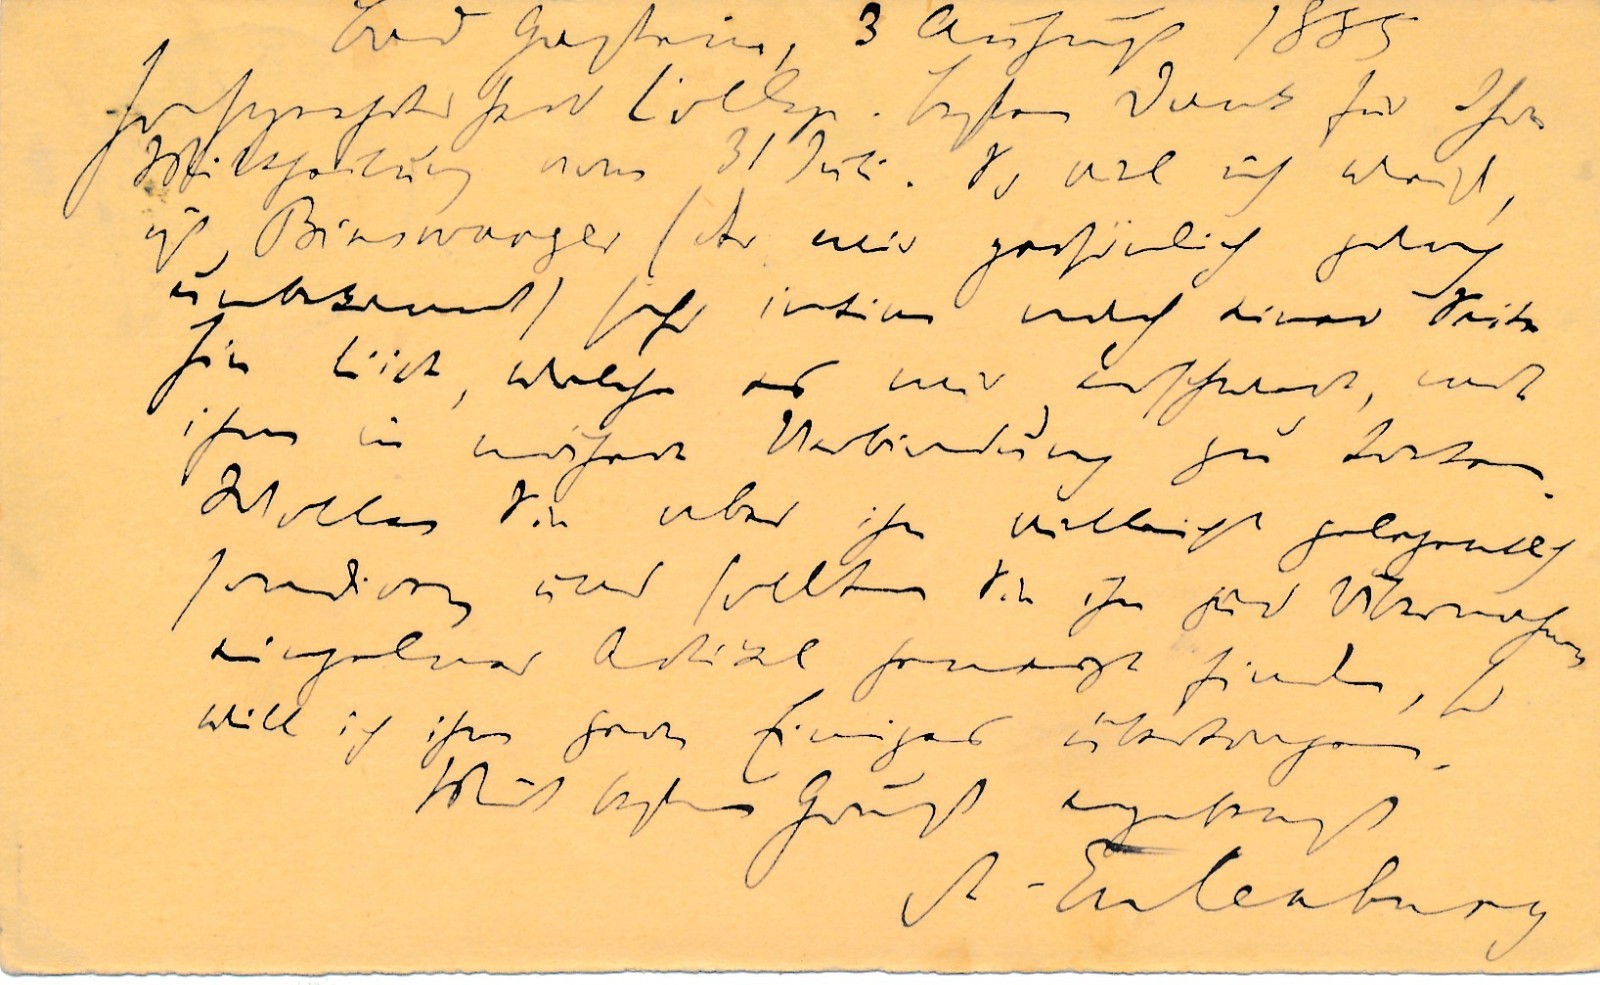 Bad Gastein, 3 August 1885
Hochgeehrter Herr College. Besten Dank für Ihre
Mittheilung vom 31 Juli. So viel ich weiß,
ist Binswanger (der mir persönlich
unbekannt) sehr intim nach einer Seite
hin liirt, welche es mir erschwert, mit
ihm in nähere Verbindung zu treten.
Wollen Sie aber ihn vielleicht gelegentlich
sondiren und sollten Sie ihn zur Übernahme
einzelner Artikel geneigt finden, so
will ich ihm gern Einiges übertragen.
Mit besten Gruß ergebenst
A. Eulenburg